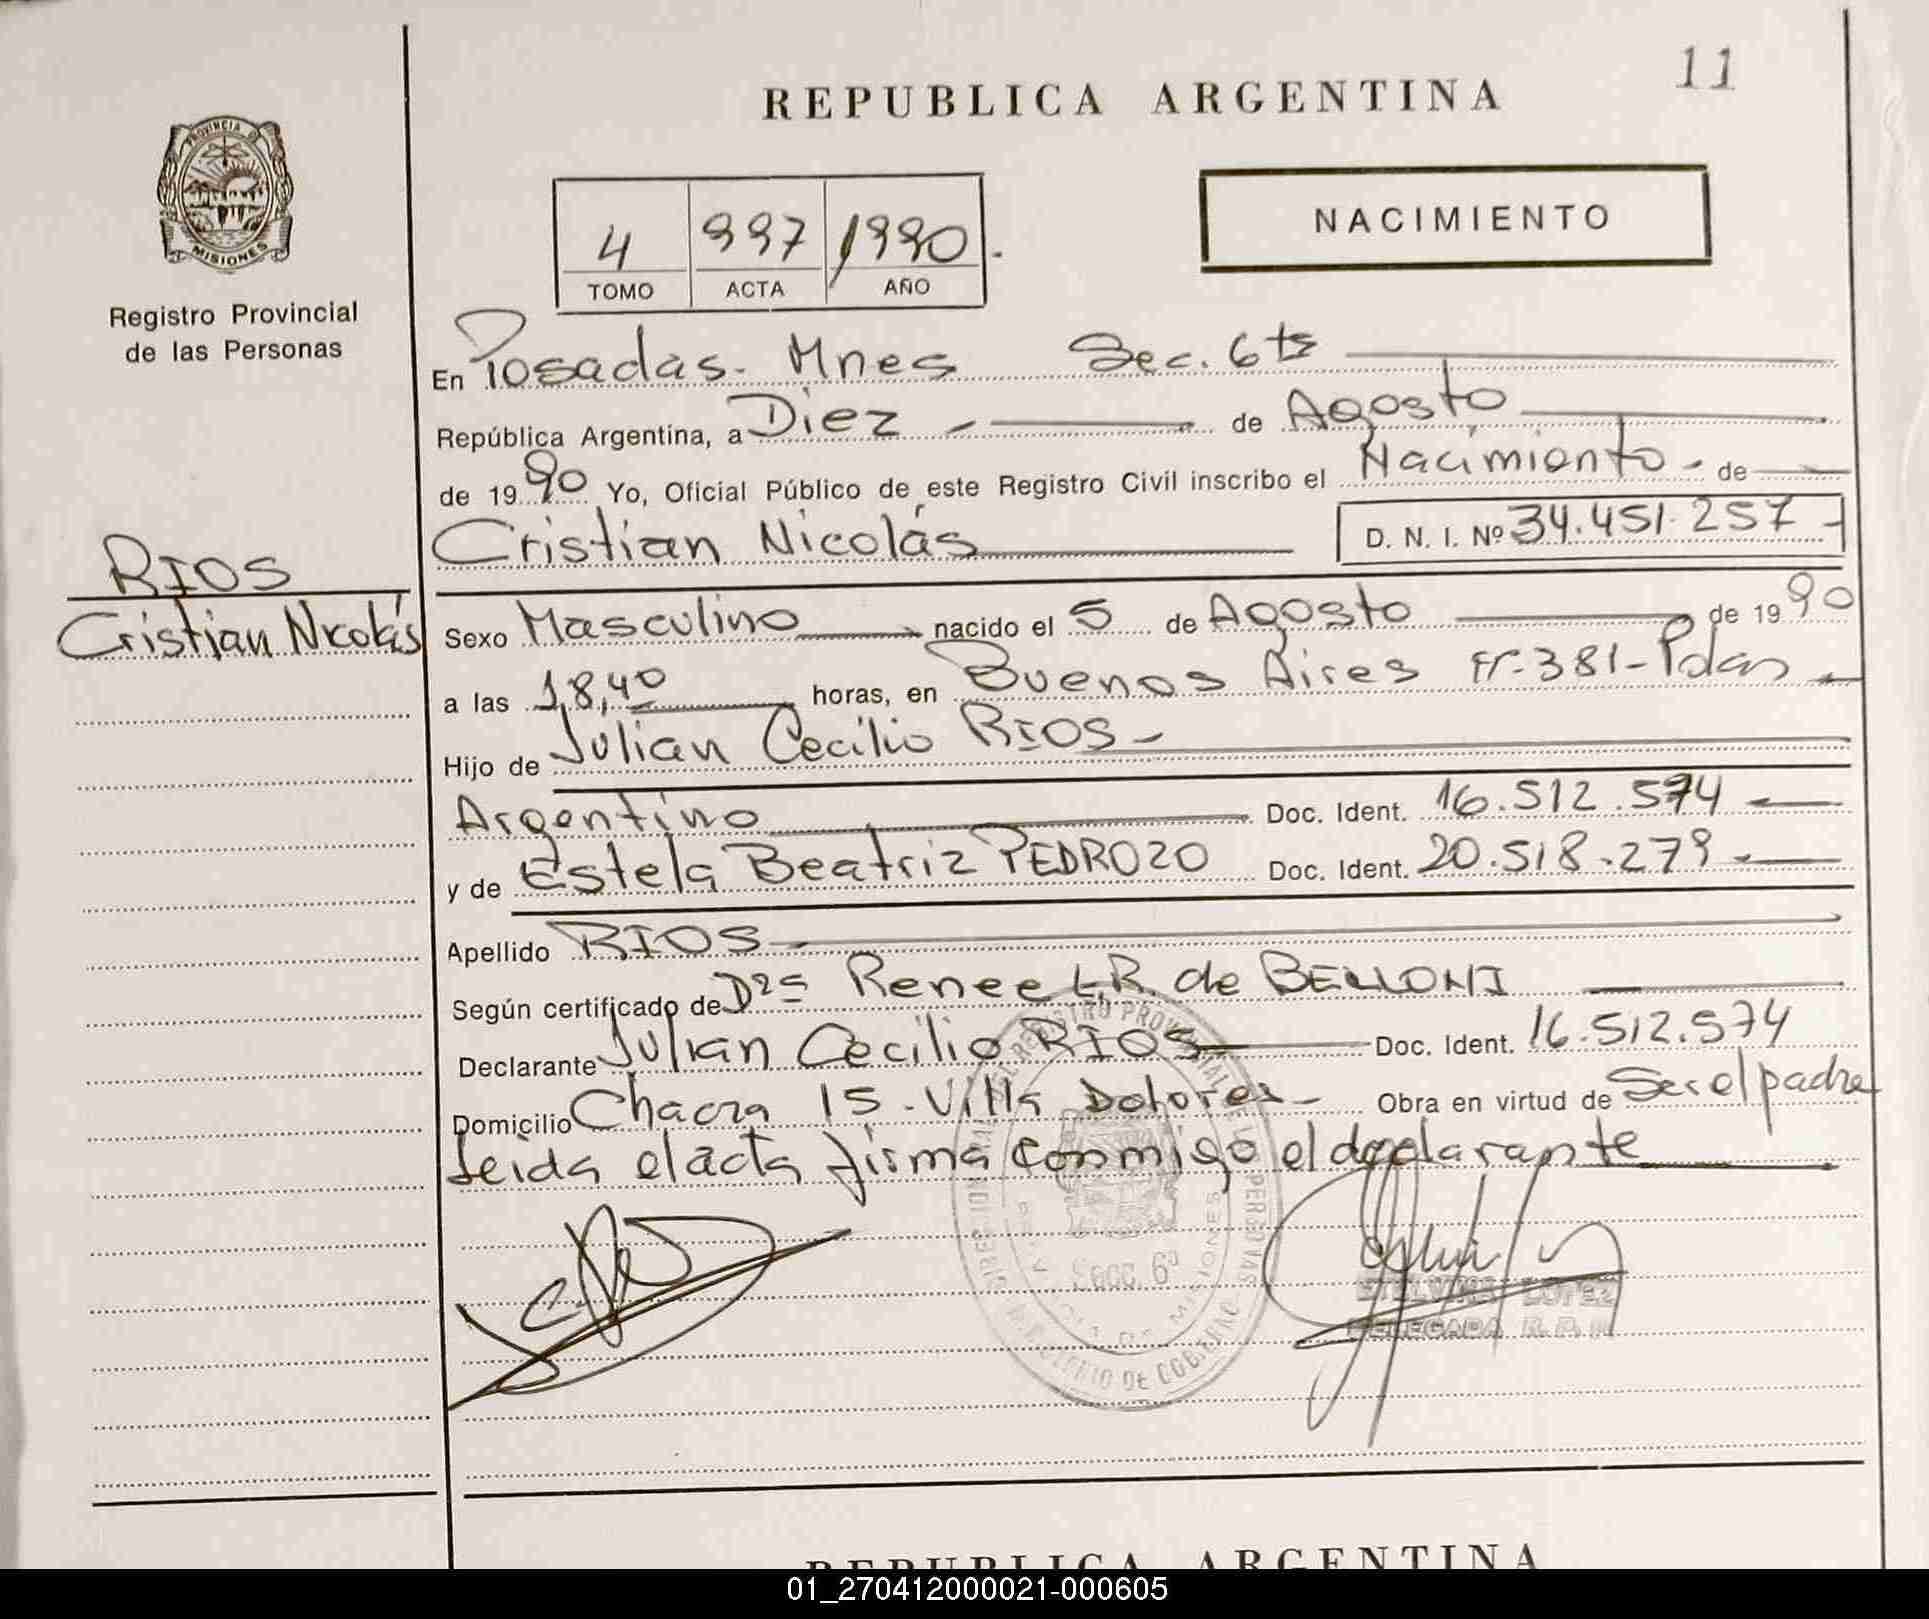 11
REPUBLICA ARGENTINA
PROVINCIA DE
MISIONES
Registro Provincial
de las Personas
4 997 1990.
TOMO ACTA AÑO
NACIMIENTO
En Posadas. Mnes Sec. 6ta
República Argentina, a Diez de Agosto
de 1990 Yo, Oficial Público de este Registro Civil inscribo el Nacimiento - de
Cristian Nicolás D. N. I. Nº 34.451.257
RIOS
Cristian Nicolás
Sexo Masculino nacido el 5 de Agosto de 1990
a las 18,40 horas, en Buenos Aires Fr. 381 - Pdas
Hijo de Julian Cecilio RIOS -
Argentino Doc. Ident. 16.512.574
y de Estela Beatriz PEDROZO Doc. Ident. 20.518.279
Apellido RIOS
Según certificado de Dra Renee L.R. de BELLONI
Declarante Julian Cecilio RIOS Doc. Ident. 16.512.574
Domicilio Chacra 15 - Villa Dolores - Obra en virtud de Ser el padre
Leida el acta firma conmigo el declarante
SECC. 6ª
MINISTERIO DE GOBIERNO
LOPEZ
DELEGADA R. P.
REPUBLICA ARGENTINA
01_270412000021-000605